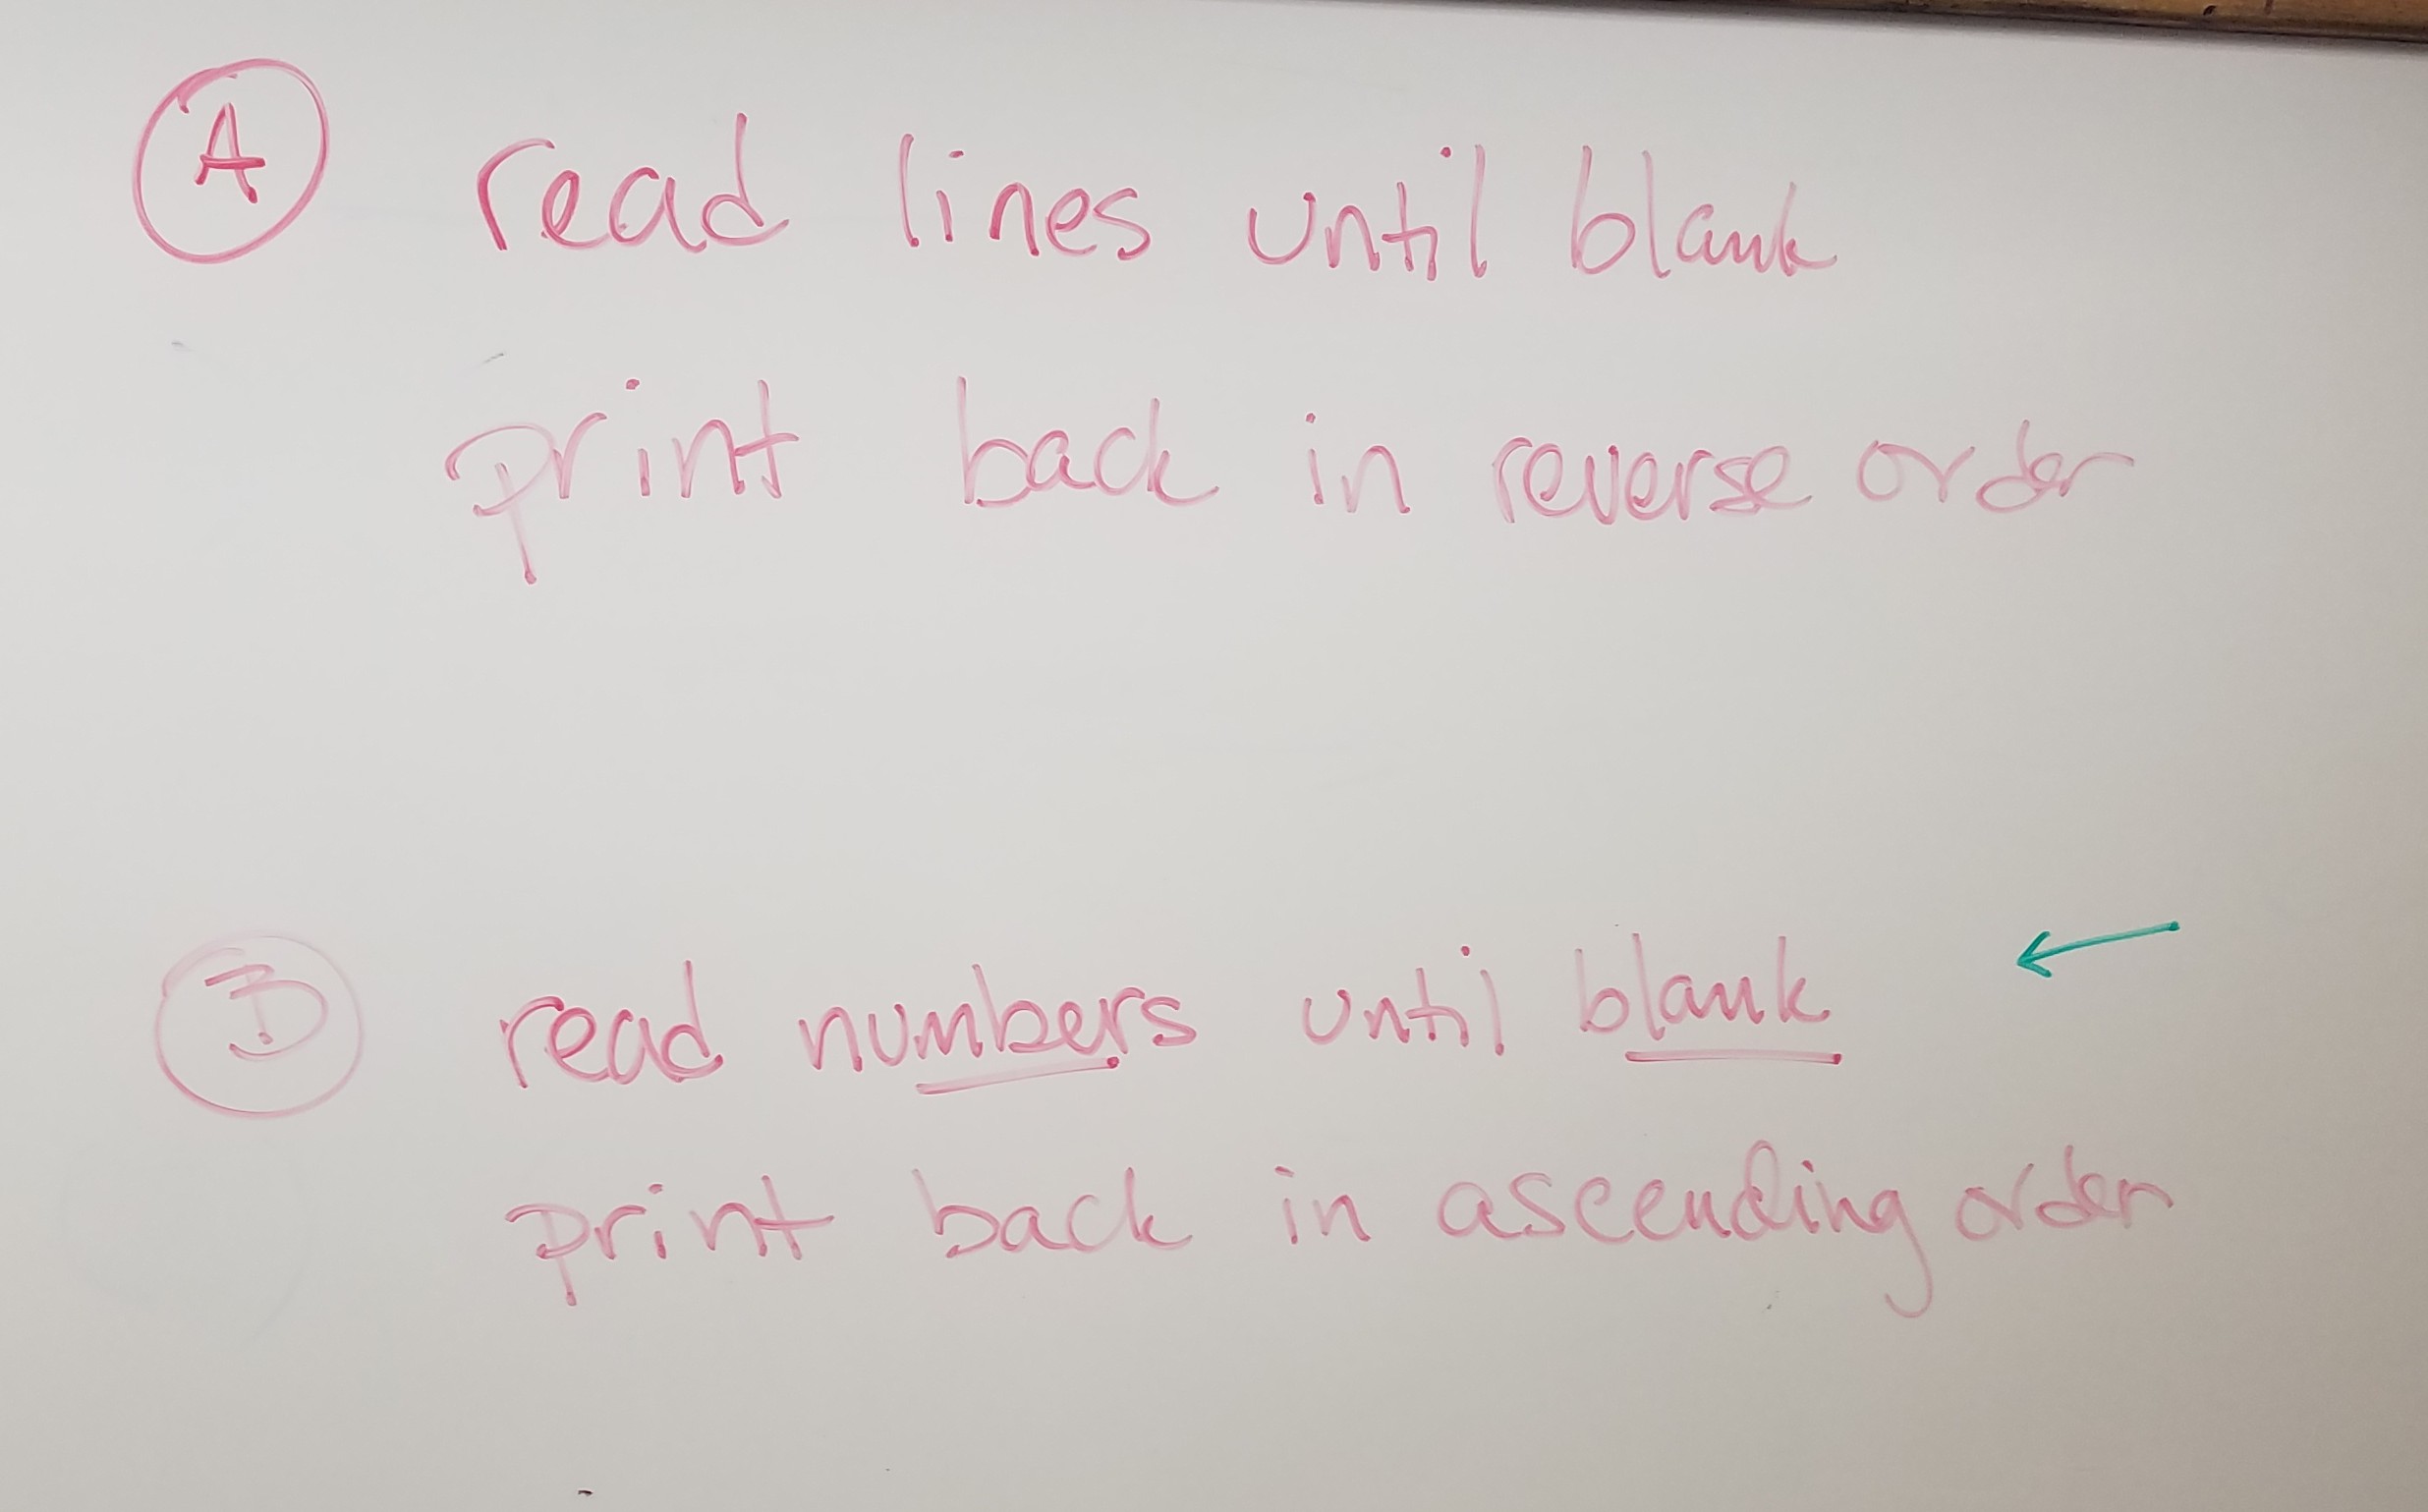 A read lines until blank
print back in reverse order
B read numbers until blank
print back in ascending order